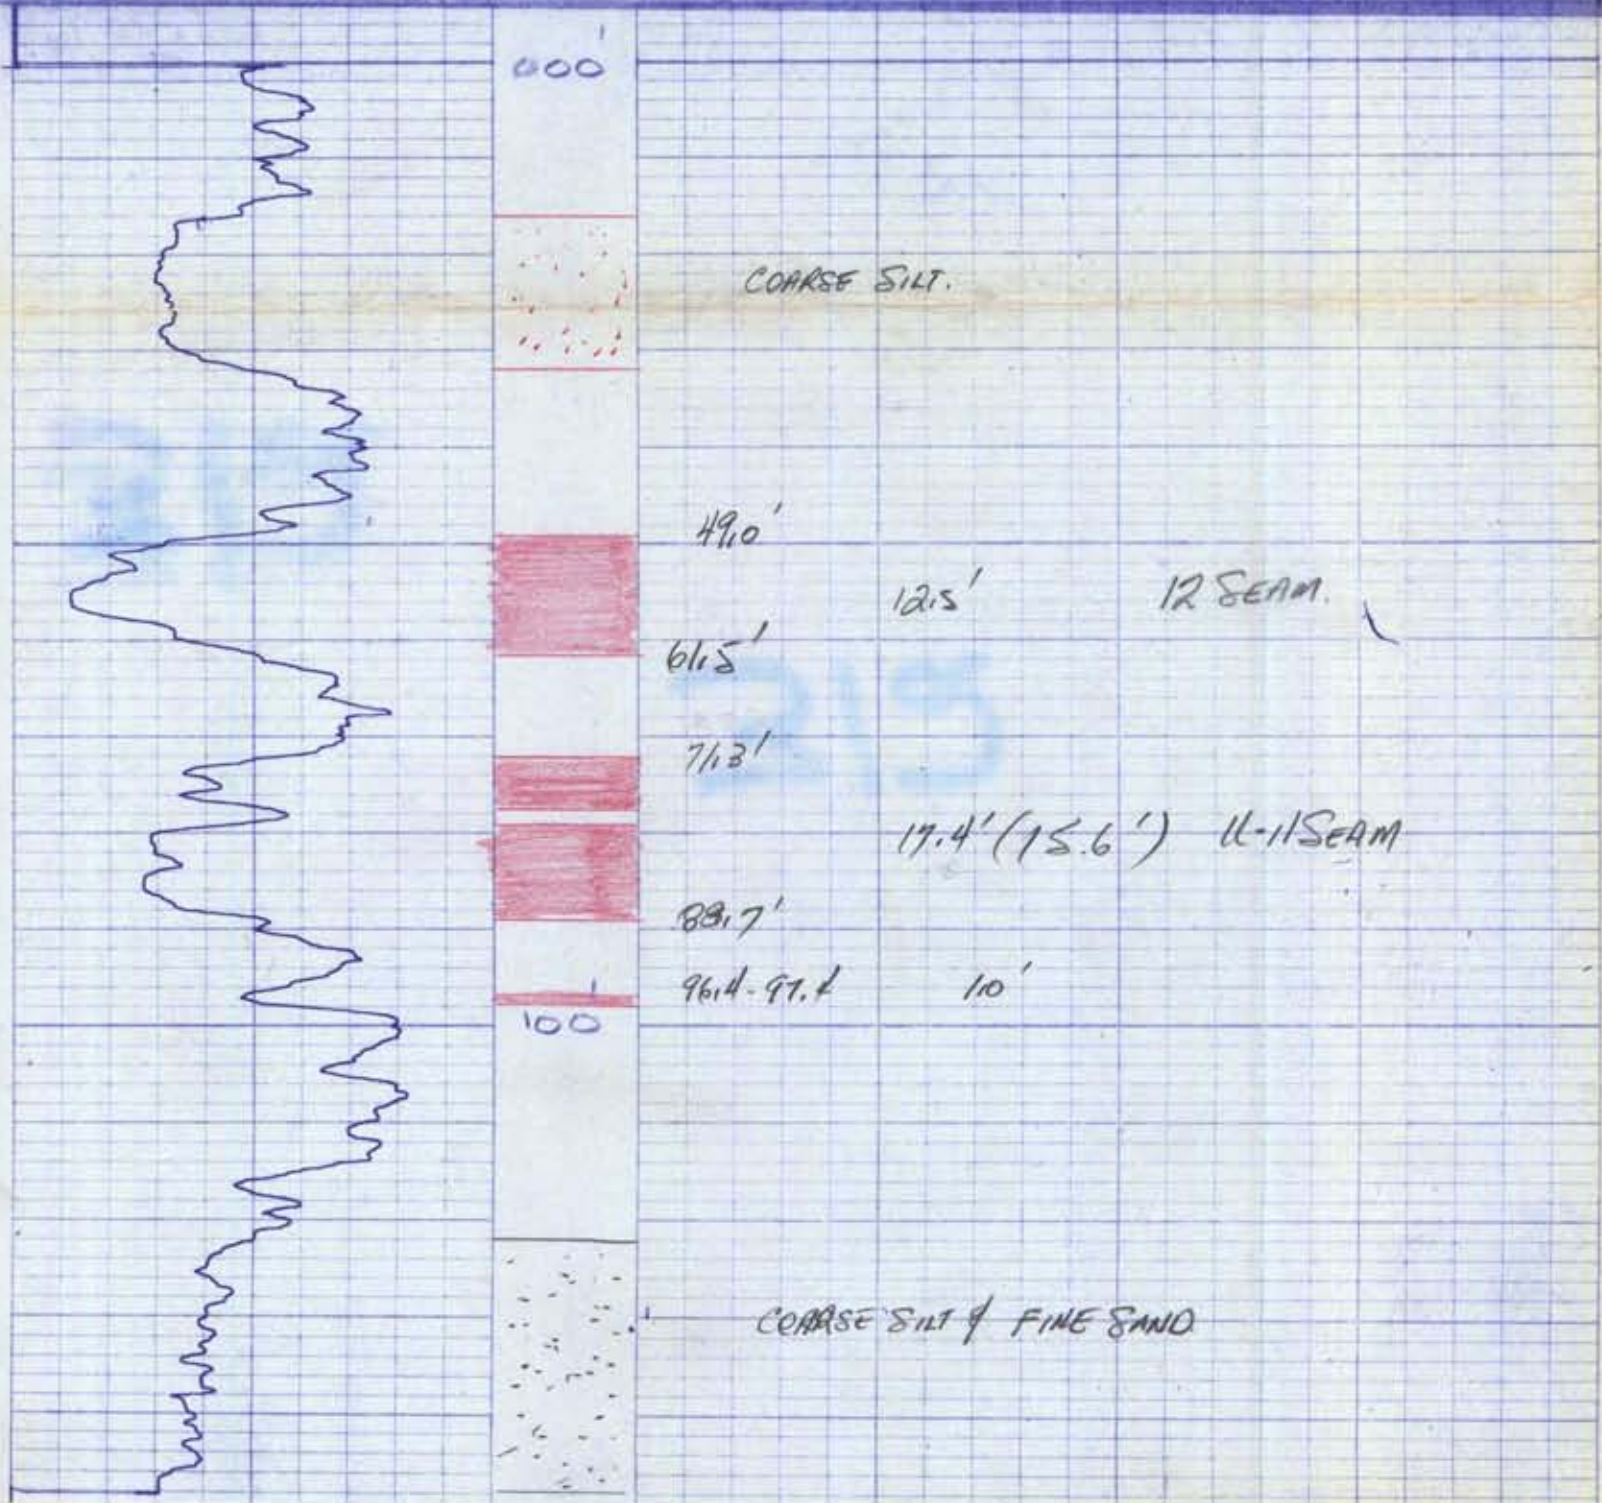 000'
COARSE SILT.
49.0'
12.5' 12 SEAM.
61.5'
215
71.3'
17.4' (15.6') U-11 SEAM
88.7'
96.4-97.4 1.0'
100'
COARSE SILT & FINE SAND